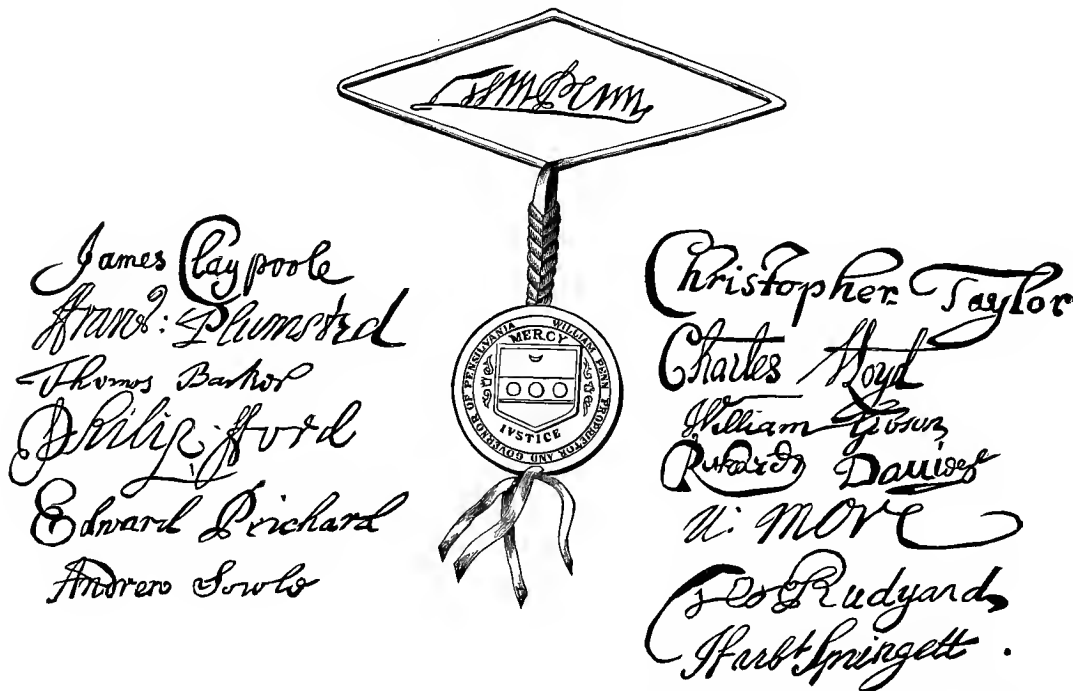 Wm Penn
James Claypoole
Frans: Plumsted
Thomas Barker
Philip Ford
Edward Prichard
Andrew Sowle
WILLIAM PENN PROPRIETOR AND GOVERNOR OF PENSILVANIA
MERCY
IVSTICE
Christopher Taylor
Charles Lloyd
William Gibson
Richard Davies
N: More
Tho Rudyard
Harbt Springett.